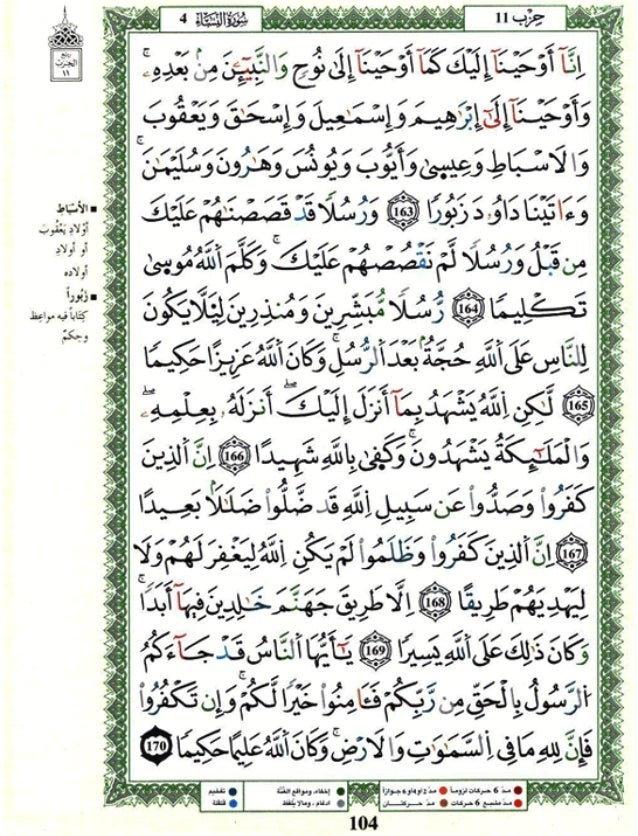 سُورَةُ النِّسَاءِ 4
حِزْب 11
رُبُع
الحِزْب
١١
إِنَّآ أَوْحَيْنَآ إِلَيْكَ كَمَآ أَوْحَيْنَآ إِلَىٰ نُوحٍ وَالنَّبِيٓـِٕنَ مِنۢ بَعْدِهِۦ ۚ
وَأَوْحَيْنَآ إِلَىٰٓ إِبْرَٰهِيمَ وَإِسْمَٰعِيلَ وَإِسْحَٰقَ وَيَعْقُوبَ
وَالَاسْبَاطِ وَعِيسىٰ وَأَيُّوبَ وَيُونُسَ وَهَٰرُونَ وَسُلَيْمَٰنَ ۚ
وَءَاتَيْنَا دَاوُۥدَ زَبُورًا 163 وَرُسُلًا قَدْ قَصَصْنَٰهُمْ عَلَيْكَ
مِن قَبْلُ وَرُسُلًا لَّمْ نَقْصُصْهُمْ عَلَيْكَ ۚ وَكَلَّمَ اللَّهُ مُوسىٰ
تَكْلِيمًا 164 رُّسُلًا مُّبَشِّرِينَ وَمُنذِرِينَ لِيَلَّا يَكُونَ
لِلنَّاسِ عَلَى اللَّهِ حُجَّةُۢ بَعْدَ الرُّسُلِ ۚ وَكَانَ اللَّهُ عَزِيزًا حَكِيمًا
165 لَّٰكِنِ اللَّهُ يَشْهَدُ بِمَآ أَنزَلَ إِلَيْكَ ۖ أَنزَلَهُۥ بِعِلْمِهِۦ ۖ
وَالْمَلَٰٓئِكَةُ يَشْهَدُونَ ۚ وَكَفىٰ بِاللَّهِ شَهِيدًا 166 اِنَّ الذِينَ
كَفَرُواْ وَصَدُّواْ عَن سَبِيلِ اِللَّهِ قَد ضَّلُّواْ ضَلَٰلَاۢ بَعِيدًا
167 اِنَّ الذِينَ كَفَرُواْ وَظَلَمُواْ لَمْ يَكُنِ اِللَّهُ لِيَغْفِرَ لَهُمْ وَلَا
لِيَهْدِيَهُمْ طَرِيقًا 168 اِلَّا طَرِيقَ جَهَنَّمَ خَٰلِدِينَ فِيهَآ أَبَدًا ۚ
وَكَانَ ذَٰلِكَ عَلَى اللَّهِ يَسِيرًا 169 يَٰٓأَيُّهَا النَّاسُ قَدْ جَآءَكُمُ
الرَّسُولُ بِالْحَقِّ مِن رَّبِّكُمْ فَـَٔامِنُواْ خَيْرًا لَّكُمْ ۚ وَإِن تَكْفُرُواْ
فَإِنَّ لِلهِ مَا فِى السَّمَٰوَٰتِ وَالَارْضِ ۚ وَكَانَ اللَّهُ عَلِيمًا حَكِيمًا 170
■ الأَسْبَاطِ
أَوْلَادِ يَعْقُوبَ
أو أولادِ
أولاده
■ زَبُوراً
كِتَاباً فيه مواعِظ
وحِكَمٌ
مدّ 6 حركات لزوماً ● مدّ 2 أو 4 أو 6 جوازاً ● إخفاء، ومواقع الغُنَّة ● تفخيم
مدّ مشبع 6 حركات ● مدّ حركتان ● ادغام، وما لا يُلفَظ ● قلقلة
104